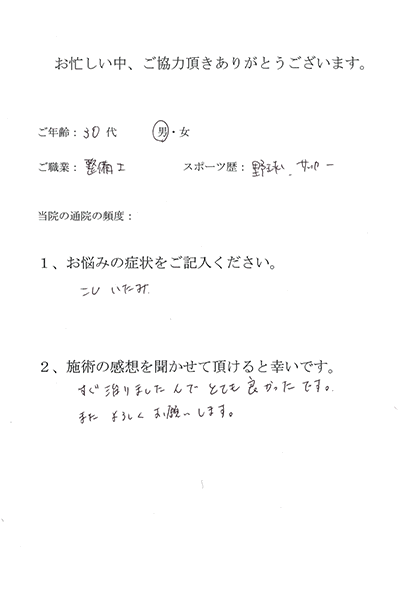 お忙しい中、ご協力頂きありがとうございます。
ご年齢：30代 男・女
ご職業：整備工 スポーツ歴：野球、サッカー
当院の通院の頻度：
1、お悩みの症状をご記入ください。
こし いたみ
2、施術の感想を聞かせて頂けると幸いです。
すぐ治りましたんで とても良かったです。
また よろしく お願いします。